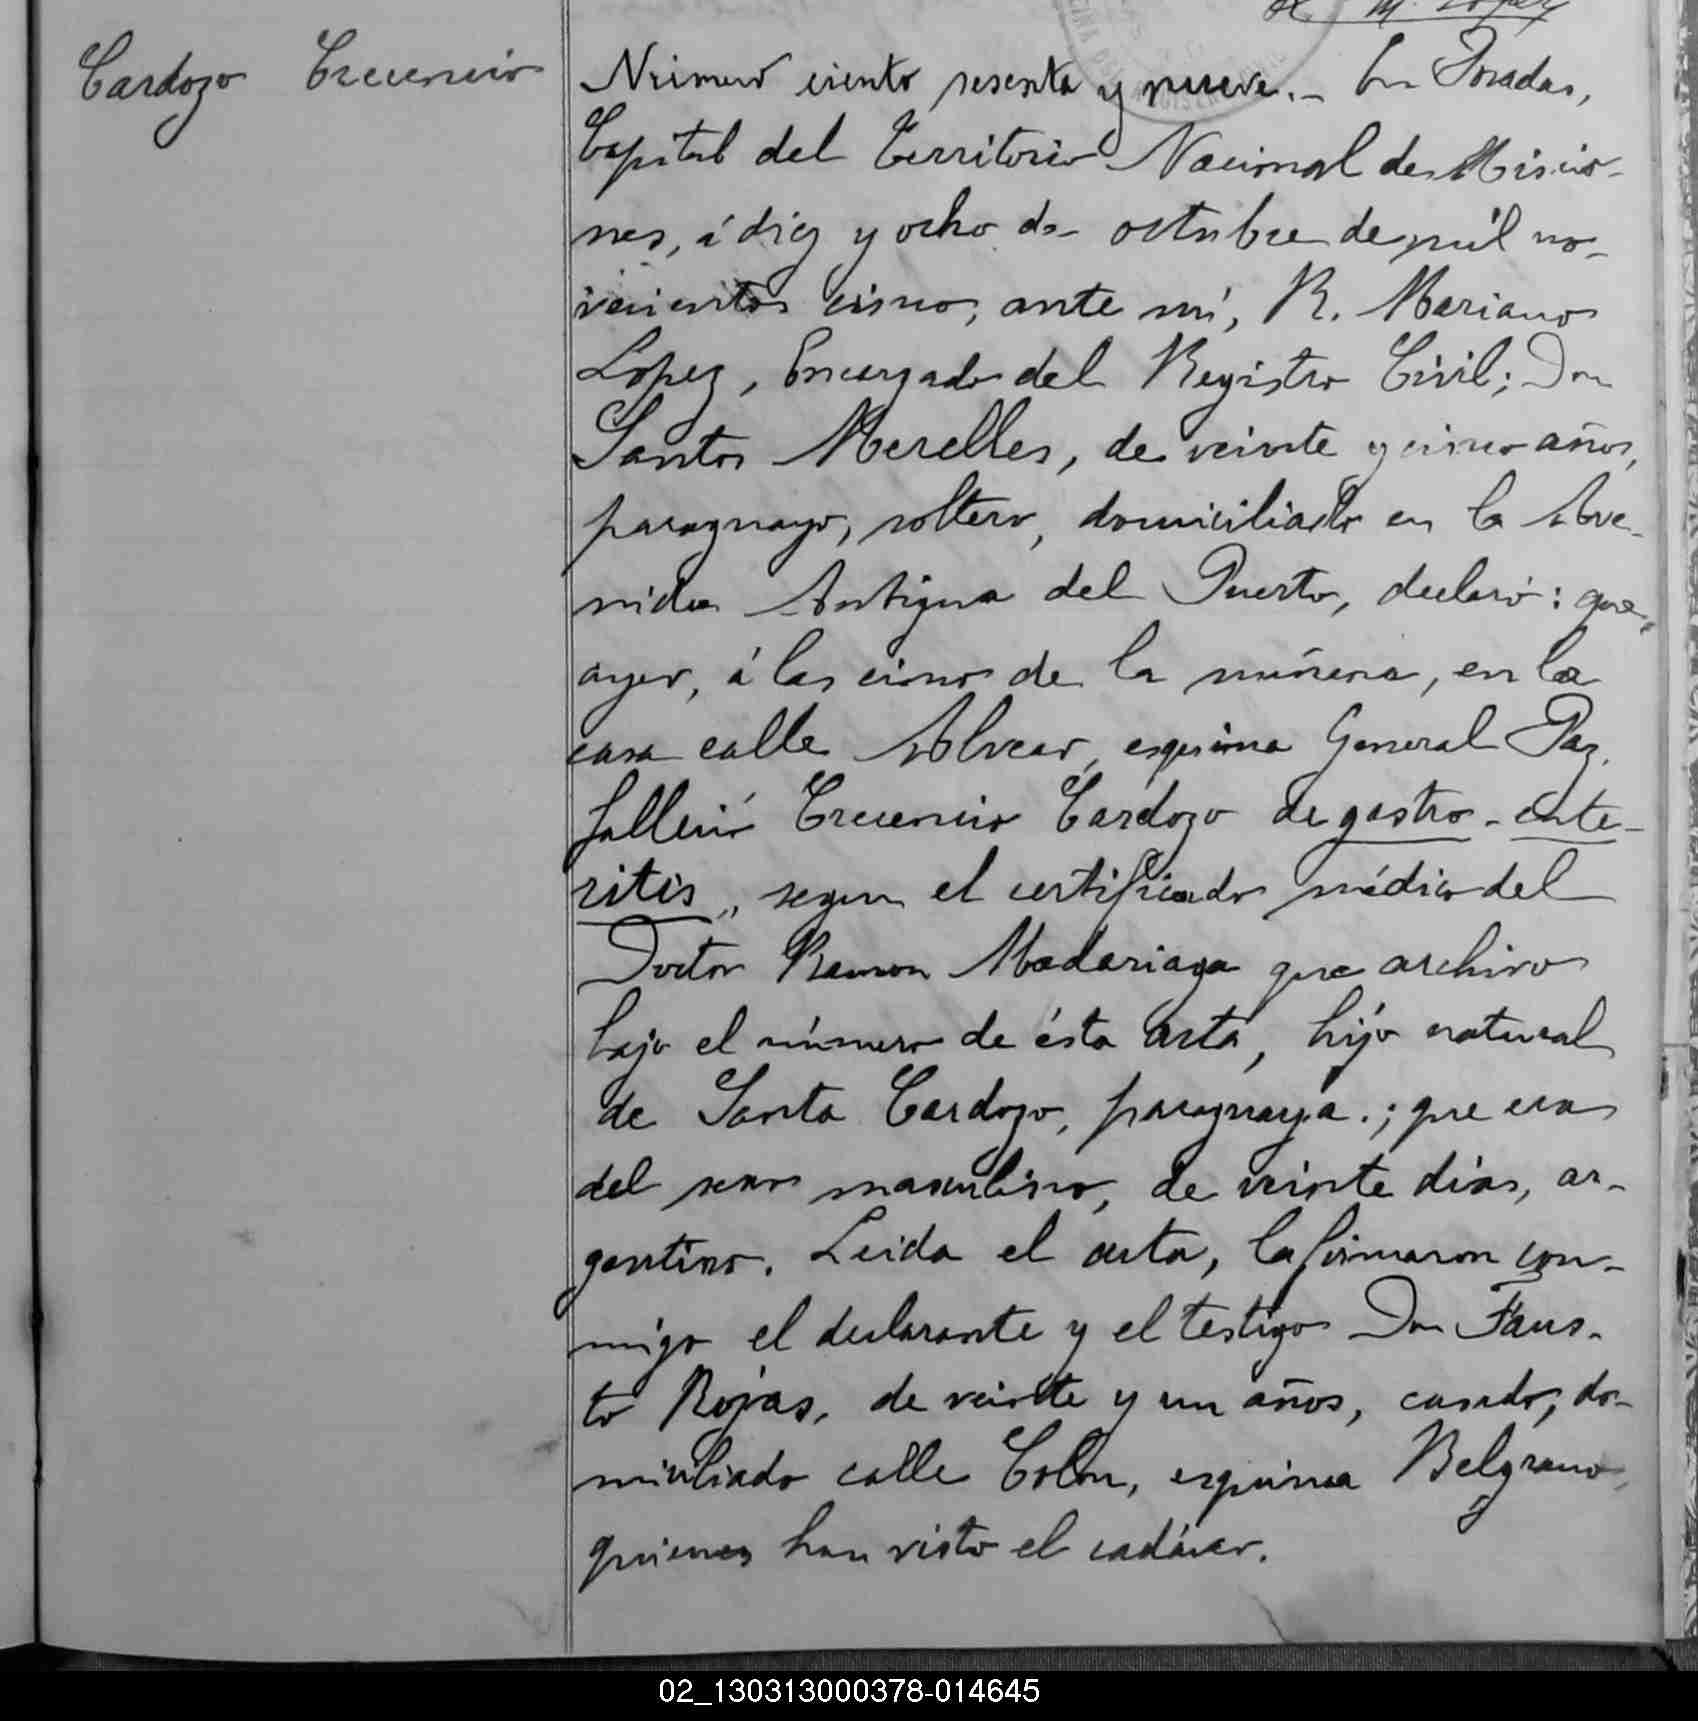 R. M. Lopez
Cardozo Crecencio
Número ciento sesenta y nueve.- En Posadas,
Capital del Territorio Nacional de Misio-
nes, á diez y ocho de octubre de mil no-
vecientos cinco, ante mí, R. Mariano
Lopez, Encargado del Registro Civil; Don
Santos Merelles, de veinte y cinco años,
paraguayo, soltero, domiciliado en la Ave-
nida Antigua del Puerto, declaró: que
ayer, á las cinco de la mañana, en la
casa calle Alvear, esquina General Paz,
falleció Crecencio Cardozo de gastro-ente-
ritis, segun el certificado médico del
Doctor Ramon Madariaga que archivo
bajo el número de ésta acta, hijo natural
de Santa Cardozo, paraguaya.; que era
del sexo masculino, de veinte dias, ar-
gentino. Leida el acta, la firmaron con-
migo el declarante y el testigo Don Faus-
to Rojas, de veinte y un años, casado, do-
miciliado calle Colon, esquina Belgrano,
quienes han visto el cadáver.
02_130313000378-014645